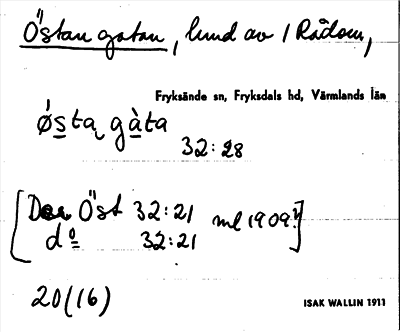 Östan gatan, lund av / Rådom,
Fryksände sn, Fryksdals hd, Värmlands län
ø̀sta gàta
32:28
[Der Öst 32:21 ml 1909?]
dº 32:21
20(16)
ISAK WALLIN 1911